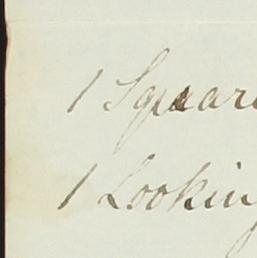 1 Squar
1 Lookin